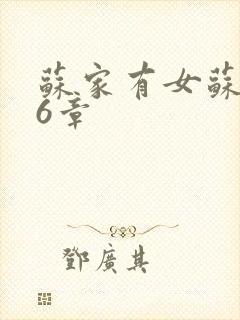 蘇家有女蘇
6章
鄧廣其